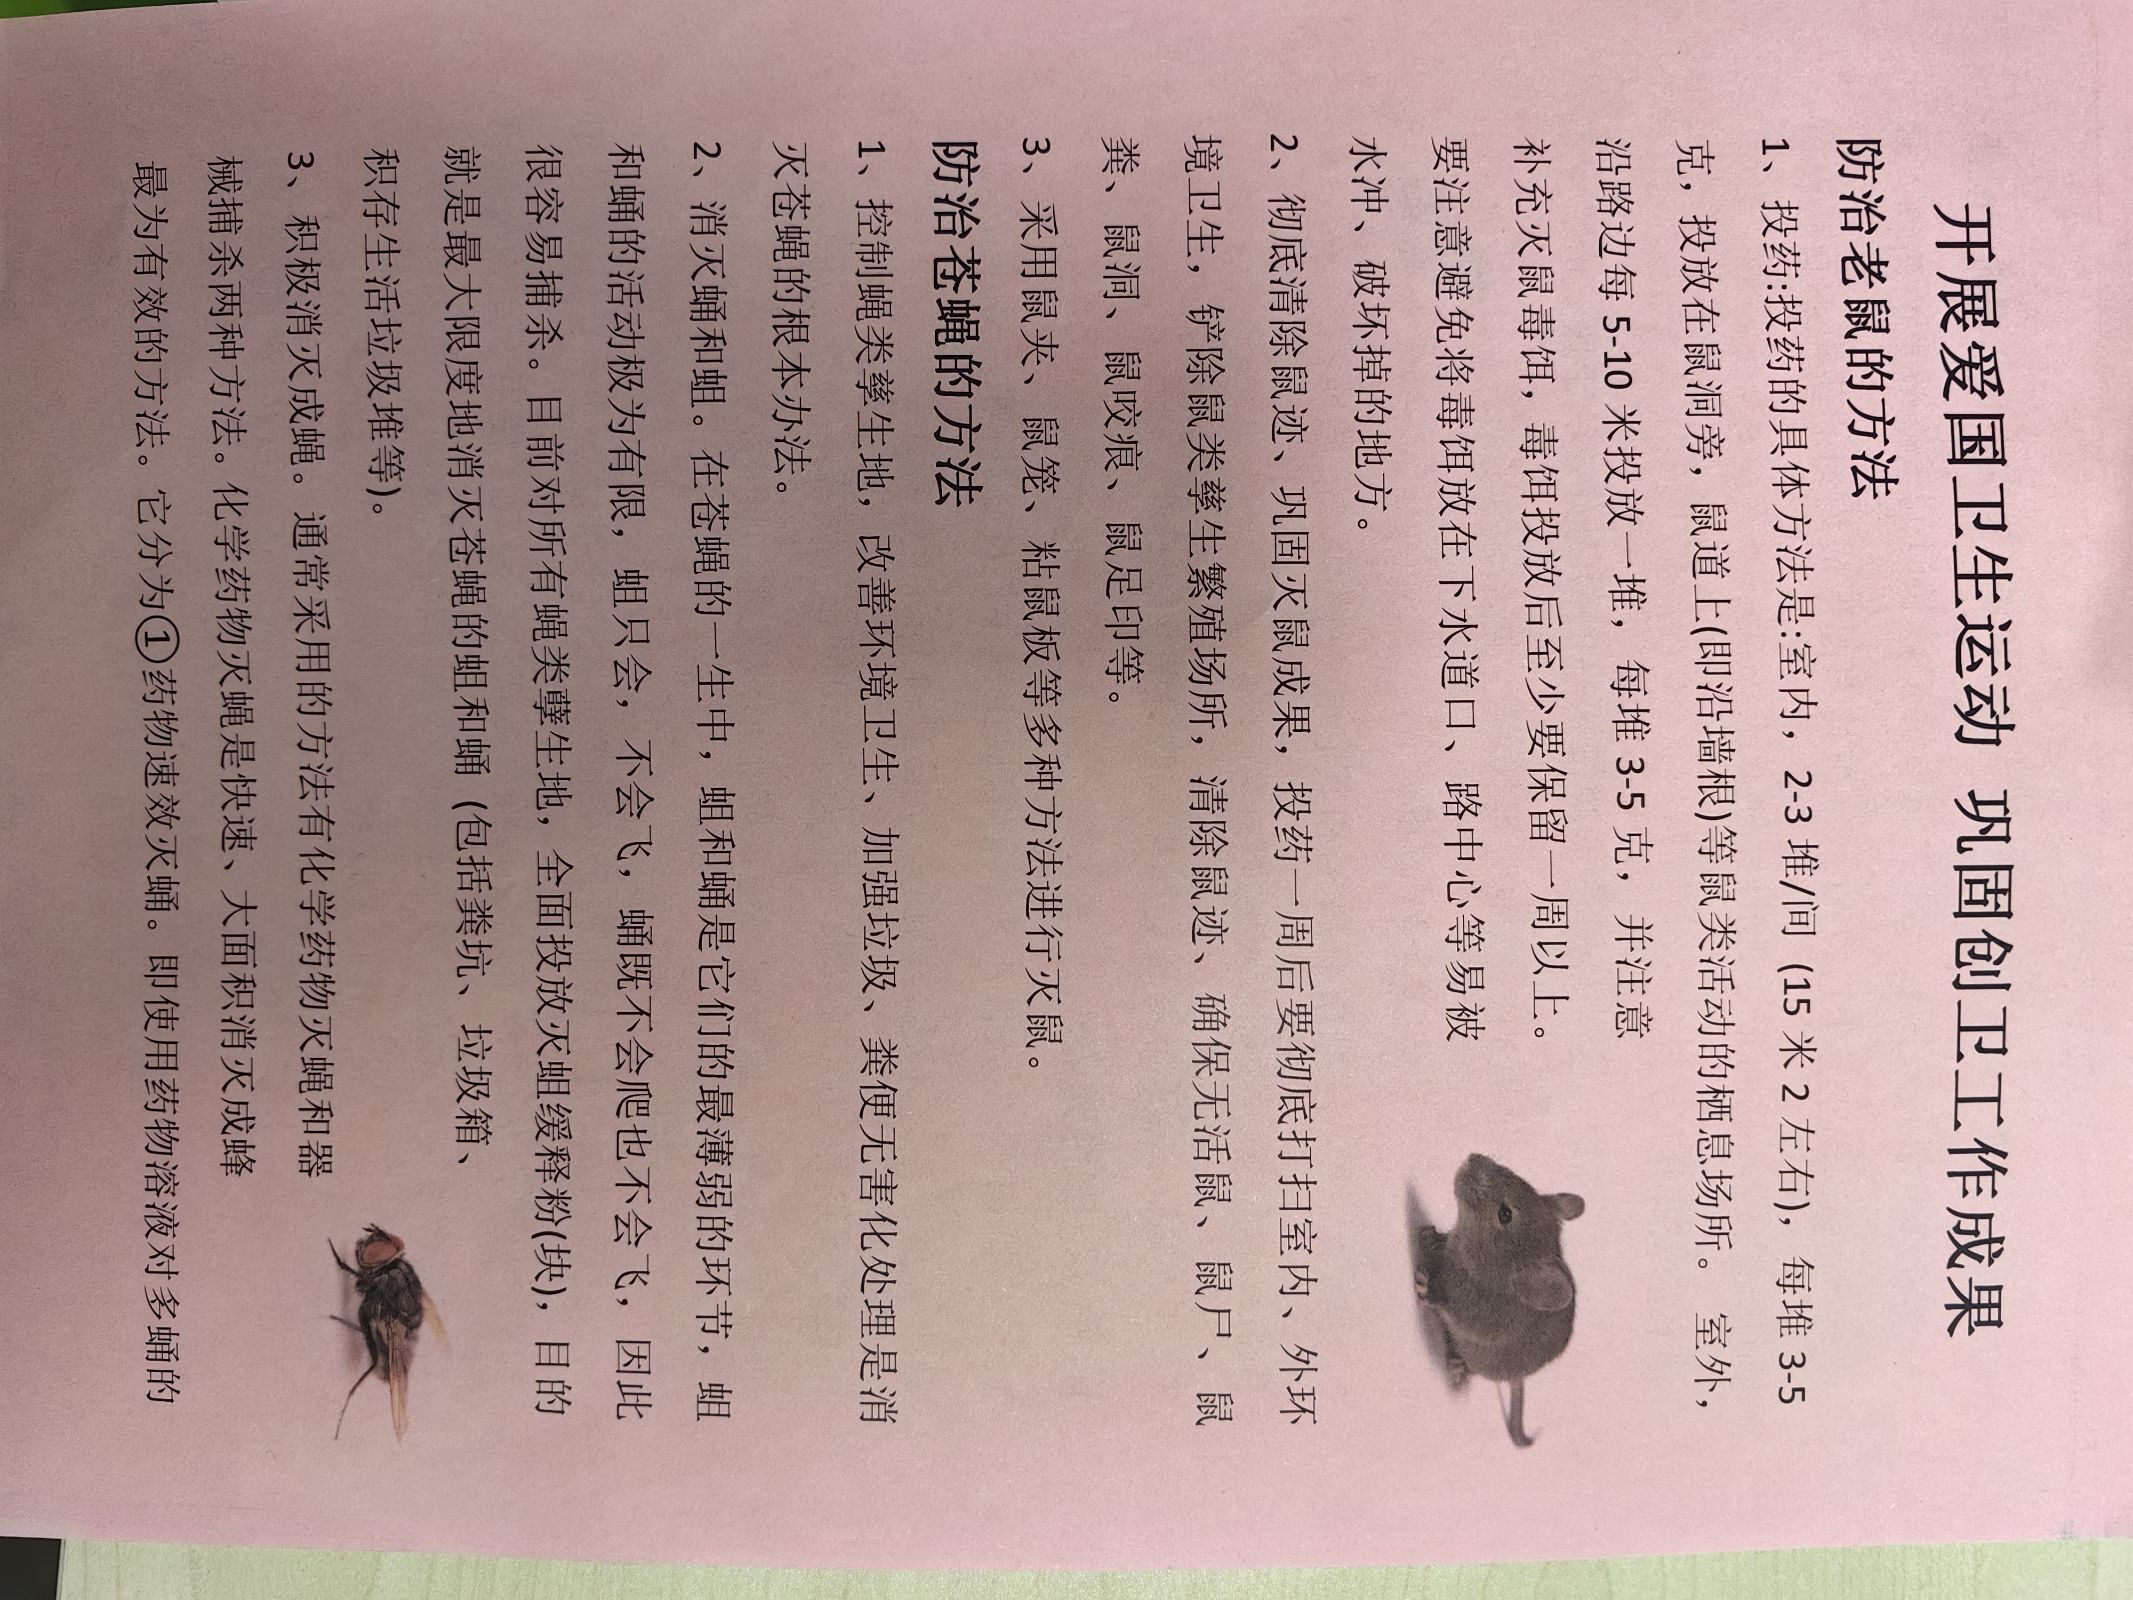 开展爱国卫生运动 巩固创卫工作成果
防治老鼠的方法
1、投药:投药的具体方法是:室内，2-3 堆/间（15 米 2 左右），每堆 3-5
克，投放在鼠洞旁，鼠道上(即沿墙根)等鼠类活动的栖息场所。 室外，
沿路边每 5-10 米投放一堆，每堆 3-5 克，并注意
补充灭鼠毒饵，毒饵投放后至少要保留一周以上。
要注意避免将毒饵放在下水道口、路中心等易被
水冲、破坏掉的地方。
2、彻底清除鼠迹、巩固灭鼠成果，投药一周后要彻底打扫室内、外环
境卫生，铲除鼠类孳生繁殖场所，清除鼠迹、确保无活鼠、鼠尸、鼠
粪、鼠洞、鼠咬痕、鼠足印等。
3、采用鼠夹、鼠笼、粘鼠板等多种方法进行灭鼠。
防治苍蝇的方法
1、控制蝇类孳生地，改善环境卫生、加强垃圾、粪便无害化处理是消
灭苍蝇的根本办法。
2、消灭蛹和蛆。在苍蝇的一生中，蛆和蛹是它们的最薄弱的环节，蛆
和蛹的活动极为有限，蛆只会，不会飞，蛹既不会爬也不会飞，因此
很容易捕杀。目前对所有蝇类孽生地，全面投放灭蛆缓释粉(块)，目的
就是最大限度地消灭苍蝇的蛆和蛹（包括粪坑、垃圾箱、
积存生活垃圾堆等)。
3、积极消灭成蝇。通常采用的方法有化学药物灭蝇和器
械捕杀两种方法。化学药物灭蝇是快速、大面积消灭成蜂
最为有效的方法。它分为①药物速效灭蛹。即使用药物溶液对多蛹的